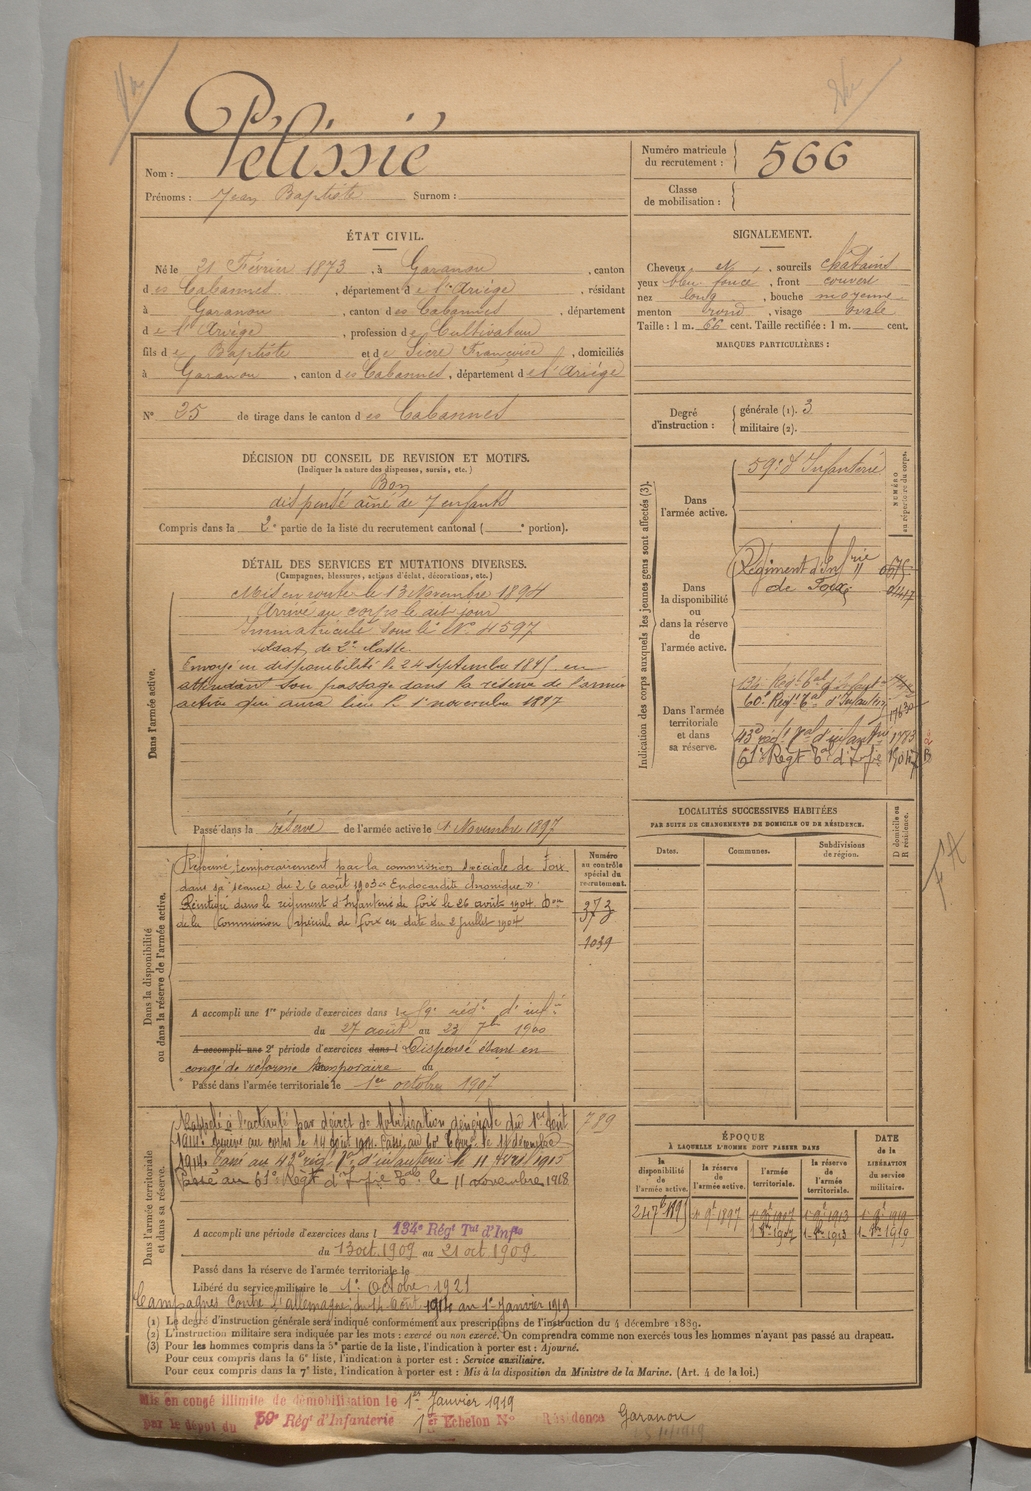 Pélissié
Nom :
Prénoms : Jean Baptiste Surnom :
Numéro matricule
du recrutement : 566
Classe
de mobilisation :
ÉTAT CIVIL.
Né le 21 Février 1873, à Garanou, canton
des Cabannes, département de l'Ariège, résidant
à Garanou, canton des Cabannes, département
de l'Ariège, profession de Cultivateur
fils de Baptiste et de Sicre Françoise, domiciliés
à Garanou, canton des Cabannes, département de l'Ariège
N° 25 de tirage dans le canton des Cabannes
SIGNALEMENT.
Cheveux et, sourcils châtains
yeux bleu foncé, front couvert
nez long, bouche moyenne
menton rond, visage ovale
Taille : 1 m. 66 cent. Taille rectifiée : 1 m. cent.
MARQUES PARTICULIÈRES :
Degré
d'instruction :
générale (1). 3
militaire (2).
DÉCISION DU CONSEIL DE REVISION ET MOTIFS.
(Indiquer la nature des dispenses, sursis, etc.)
Bon
dispensé aîné de 7 enfants
Compris dans la 2e partie de la liste du recrutement cantonal ( portion).
DÉTAIL DES SERVICES ET MUTATIONS DIVERSES.
(Campagnes, blessures, actions d'éclat, décorations, etc.)
Dans l'armée active.
Mis en route le 13 Novembre 1894
Arrivé au corps le dit jour
Immatriculé sous le N° 4597
soldat de 2e classe
Envoyé en disponibilité le 24 septembre 1895 en
attendant son passage dans la réserve de l'armée
active qui aura lieu le 1er novembre 1897
Passé dans la réserve de l'armée active le 1er Novembre 1897
Indication des corps auxquels les jeunes gens sont affectés (3).
NUMÉRO
au répertoire du corps.
Dans
l'armée active.
59e d'Infanterie
Dans
la disponibilité
ou
dans la réserve
de
l'armée active.
Régiment d'Infrie
de Foix
Dans l'armée
territoriale
et dans
sa réserve.
134e Régt Tal d'Infant
60e Régt Tal d'Infanterie 17630
43e régt Tal d'infantrie 1773
61e Régt Tal d'Infie
LOCALITÉS SUCCESSIVES HABITÉES
PAR SUITE DE CHANGEMENTS DE DOMICILE OU DE RÉSIDENCE.
Dates. Communes. Subdivisions
de région.
D domicile ou
R résidence.
Dans la disponibilité
ou dans la réserve de l'armée active.
Numéro
au contrôle
spécial du
recrutement.
373
1039
Réformé temporairement par la commission spéciale de Foix
dans sa séance du 26 août 1903 « Endocardite chronique »
Réintégré dans le régiment d'Infanterie de Foix le 26 août 1904. Don
de la Commission spéciale de Foix en date du 2 juillet 1904
A accompli une 1re période d'exercices dans le 59e régt d'infie
du 27 août au 23 7bre 1900
A accompli une 2e période d'exercices dans l Dispensé étant en
congé de réforme temporaire au
Passé dans l'armée territoriale le 1er octobre 1907
Dans l'armée territoriale
et dans sa réserve.
789
Rappelé à l'activité par décret de Mobilisation générale du 1er Août
1914. Arrivé au corps le 14 août 1914. Passé au 60e Terral le 11 décembre
1914. Passé au 43e régt Tal d'infanterie le 11 Avril 1915
Passé au 61e Régt d'Infie Tale le 11 novembre 1918
A accompli une période d'exercices dans l 134e Régt Tal d'Infie
du 13 oct. 1909 au 21 oct 1909
Passé dans la réserve de l'armée territoriale le
Libéré du service militaire le 1er Octobre 1921
Campagnes contre l'allemagne du 14 Août 1914 au 1er Janvier 1919
ÉPOQUE
À LAQUELLE L'HOMME DOIT PASSER DANS
DATE
de la
LIBÉRATION
du service
militaire.
la
disponibilité
de
l'armée active.
la réserve
de
l'armée active.
l'armée
territoriale.
la réserve
de
l'armée
territoriale.
24 7bre 1895 1er 9bre 1897 1er 9bre 1907 1er 9bre 1913 1er 9bre 1919
1er 8bre 1907 1er 8bre 1913 1er 8bre 1919
(1) Le degré d'instruction générale sera indiqué conformément aux prescriptions de l'instruction du 4 décembre 1889.
(2) L'instruction militaire sera indiquée par les mots : exercé ou non exercé. On comprendra comme non exercés tous les hommes n'ayant pas passé au drapeau.
(3) Pour les hommes compris dans la 5e partie de la liste, l'indication à porter est : Ajourné.
Pour ceux compris dans la 6e liste, l'indication à porter est : Service auxiliaire.
Pour ceux compris dans la 7e liste, l'indication à porter est : Mis à la disposition du Ministre de la Marine. (Art. 4 de la loi.)
Mis en congé illimité de démobilisation le 1er Janvier 1919
par le dépôt du 59e Régt d'Infanterie 1er Echelon N° Résidence Garanou